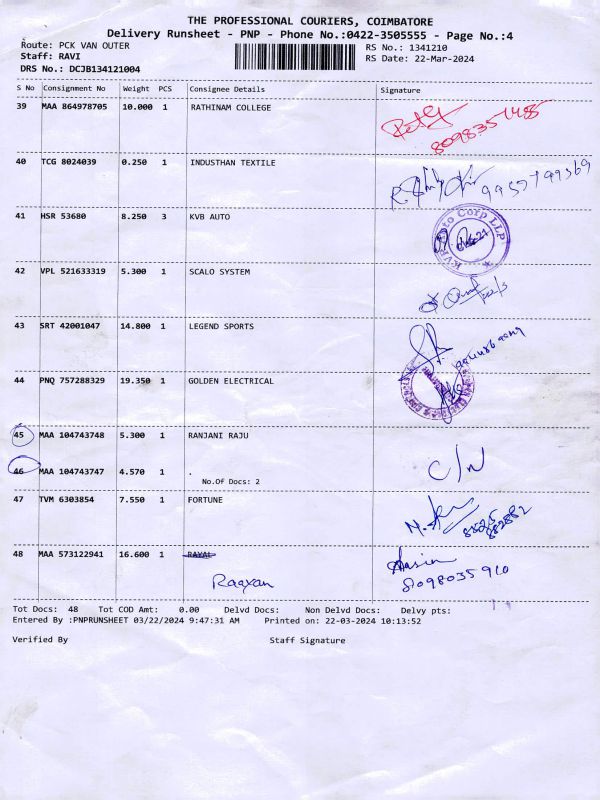 THE PROFESSIONAL COURIERS, COIMBATORE
Delivery Runsheet - PNP - Phone No.:0422-3505555 - Page No.:4
Route: PCK VAN OUTER RS No.: 1341210
Staff: RAVI RS Date: 22-Mar-2024
DRS No.: DCJB134121004
S No Consignment No Weight PCS Consignee Details Signature
39 MAA 864978705 10.000 1 RATHINAM COLLEGE
40 TCG 8024039 0.250 1 INDUSTHAN TEXTILE
41 HSR 53680 8.250 3 KVB AUTO
42 VPL 521633319 5.300 1 SCALO SYSTEM
43 SRT 42001047 14.800 1 LEGEND SPORTS
44 PNQ 757288329 19.350 1 GOLDEN ELECTRICAL
45 MAA 104743748 5.300 1 RANJANI RAJU
C/N
46 MAA 104743747 4.570 1 .
No.Of Docs: 2
47 TVM 6303854 7.550 1 FORTUNE
8825
882882
48 MAA 573122941 16.600 1 RAYAL
Raayan
8098035910
Tot Docs: 48 Tot COD Amt: 0.00 Delvd Docs: Non Delvd Docs: Delvy pts:
Entered By :PNPRUNSHEET 03/22/2024 9:47:31 AM Printed on: 22-03-2024 10:13:52
Verified By Staff Signature